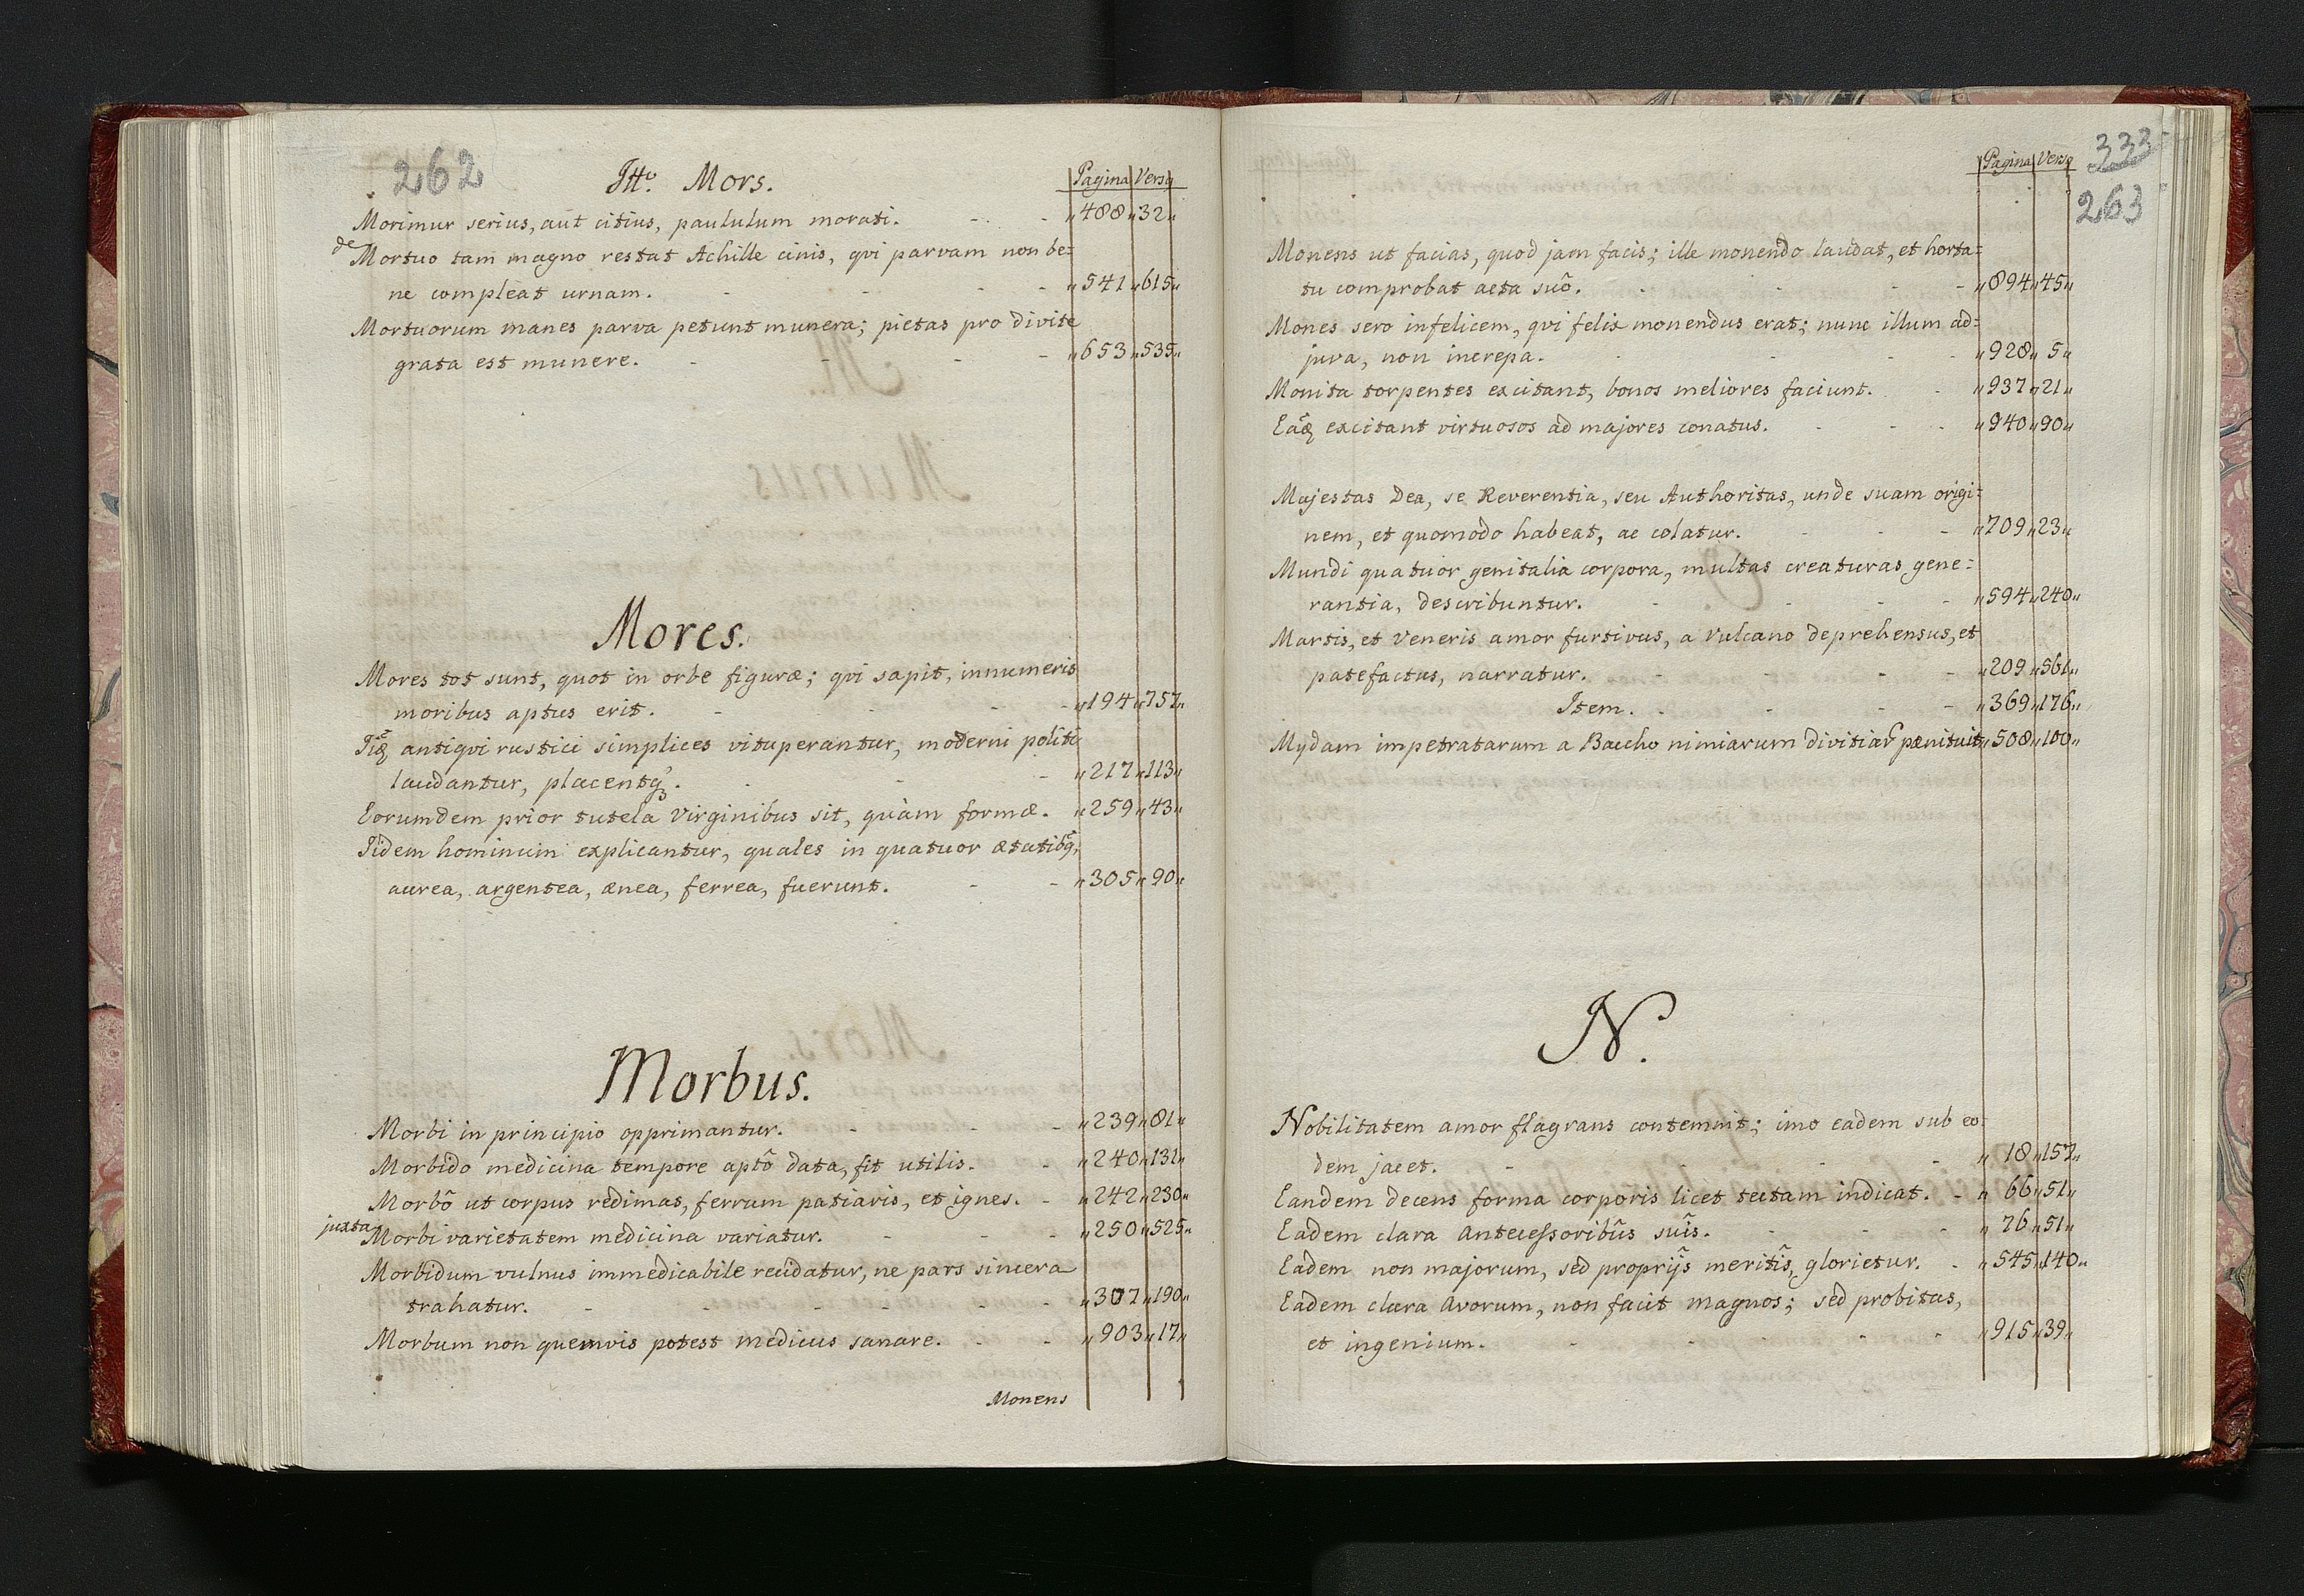 262
Itt.o Mors.
Pagina Versq
Morimur serius, aut citius, paululum morati. - - „488„32„
de Mortuo tam magno restat Achille cinis, qvi parvam non be=
ne compleat urnam. - - - - „541„615„
Mortuorum manes parva petunt munera; pietas pro divite
grata est munere. - - - - „653„535„
Mores.
Mores tot sunt, quot in orbe figuræ; qvi sapit, innumeris
moribus aptus erit. - - - - „194„757„
antiqvi rustici simplices vituperantur, moderni politi
laudantur, placentq3. - - - „217„113„
Eorumdem prior tutela Virginibus sit, quàm formæ. „259„43„
Iidem hominum explicantur, quales in quatuor ætatibq,
aurea, argentea, ænea, ferrea, fuerunt. - - „305„90„
Morbus.
Morbi in principio opprimantur. - - - „239„81„
Morbido medicina tempore aptô data, fit utilis. - „240„131„
Morbô ut corpus redimas, ferrum patiaris, et ignes. - „242„230„
juxta Morbi varietatem medicina variatur. - - - „250„525„
Morbidum vulnus immedicabile recidatur, ne pars sincera
trahatur. - - - - - „307„190„
Morbum non quemvis potest medicus sanare. - - „903„17„
Monens
333
263
Pagina Versq
Monens ut facias, quod jam facis; ille monendo laudat, et horta=
tu comprobat acta suô. - - - - „894„45„
Mones sero infelicem, qvi felix monendus erat; nunc illum ad=
juva, non increpa. - - - - „928„5„
Monita torpentes excitant, bonos meliores faciunt. - „937„21„
excitant virtuosos ad majores conatus. - - - „940„90„
Majestas Dea, se Reverentia, seu Authoritas, unde suam origi=
nem, et quomodo habeat, ac colatur. - - - „709„23„
Mundi quatuor genitalia corpora, multas creaturas gene=
rantia, describuntur. - - - - „594„240„
Martis, et Veneris amor furtivus, a Vulcano deprehensus, et
patefactus, narratur. - - - - „209„561„
Item. - - - - „369„176„
Mydam impetratarum a Baccho nimiarum divitiar pænituit „508„100„
N.
Nobilitatem amor flagrans contemnit; imo eadem sub eo=
dem jacet. - - - - „18„157„
Eandem decens forma corporis licet tectam indicat. - „66„51„
Eadem clara Antecessoribûs suîs. - - - „76„51„
Eadem non majorum, sed proprijs meritîs, glorietur. - „545„140„
Eadem clara Avorum, non facit magnos; sed probitas,
et ingenium. - - - - „915„39„